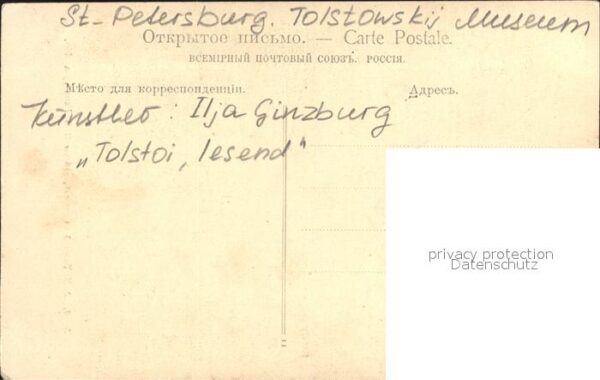 St-Petersburg. Tolstowskij Museum
Открытое письмо. — Carte Postale.
ВСЕМІРНЫЙ ПОЧТОВЫЙ СОЮЗЪ. РОССІЯ.
Мѣсто для корреспонденціи. Адресъ.
Künstler: Ilja Ginzburg
„Tolstoi, lesend"
privacy protection
Datenschutz